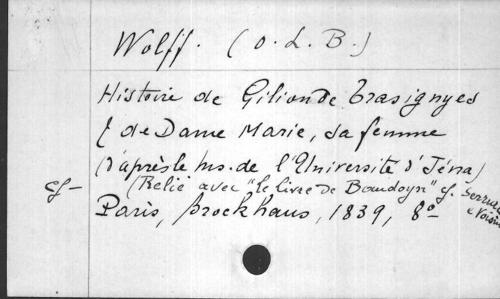 Wolff. (O. L. B.)
Histoire de Gilion de Trasignyes
& de Dame Marie, sa femme
(d'après le ms. de l'Université d'Jéna)
(Relié avec "le livre de Baudoyn" cf. Serrure
cf— Paris, Brockhaus, 1839, 8° & Voisin